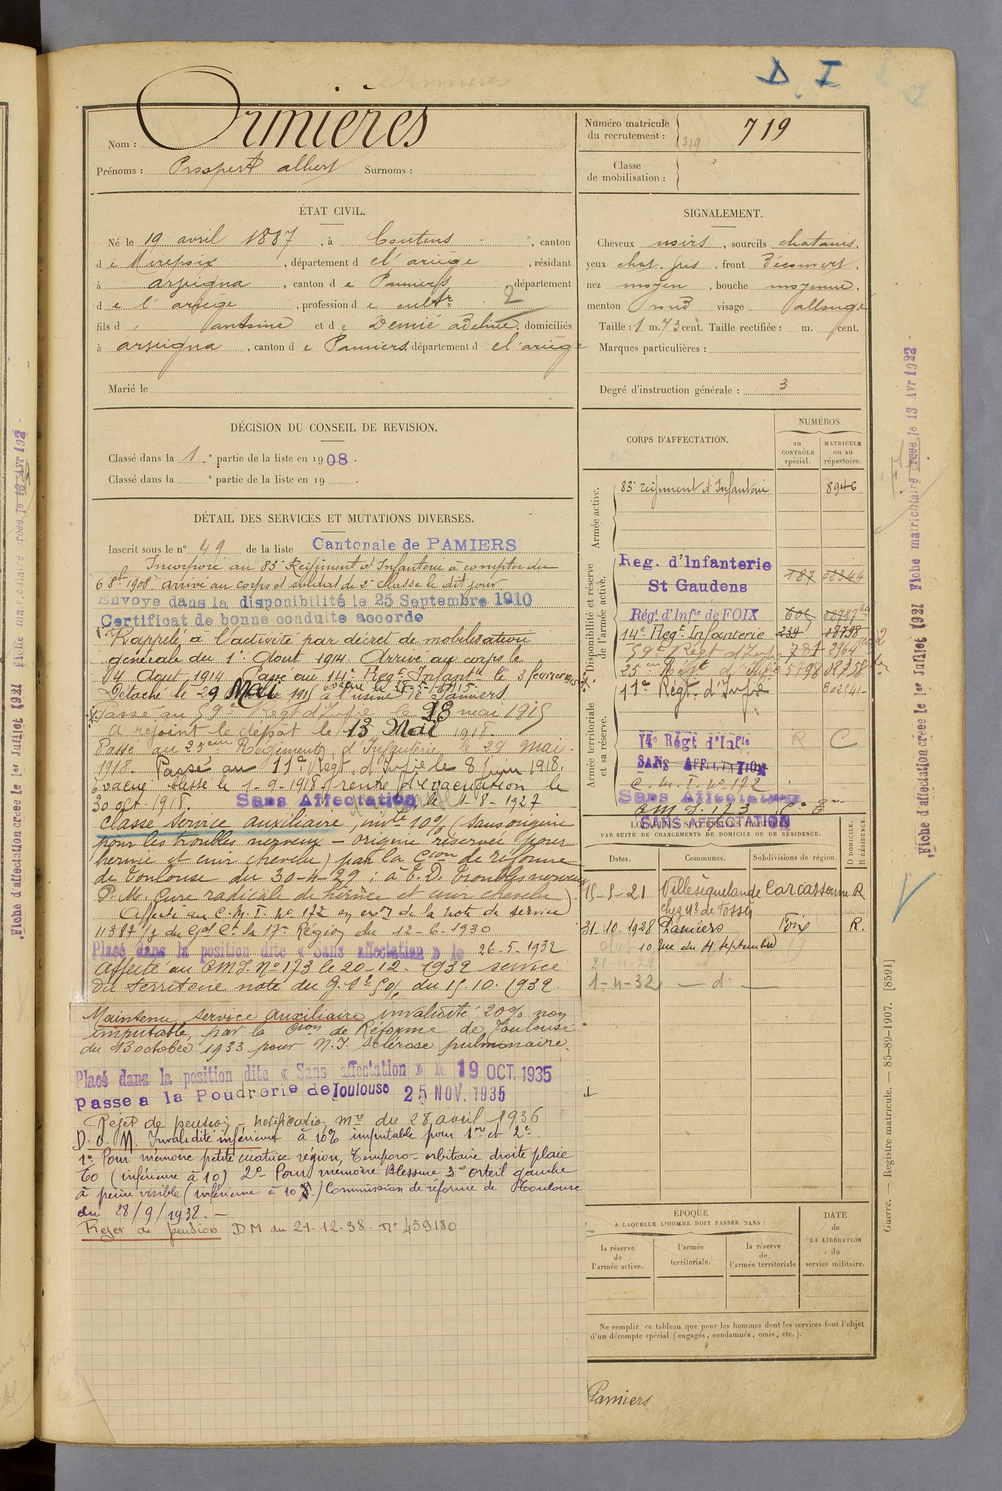 D. I
Nom : Ormières
Prénoms : Prosper albert Surnoms :
Numéro matricule
du recrutement : 719
Classe
de mobilisation :
ÉTAT CIVIL.
Né le 19 avril 1887, à Coutens, canton
de Mirepoix, département de l'ariège, résidant
à arvigna, canton de Pamiers, département
de l'ariège, profession de cultr 2
fils d' antoine et de Demié Adeline, domiciliés
à arvigna, canton de Pamiers, département de l'ariège
Marié le
SIGNALEMENT.
Cheveux noirs, sourcils chatains,
yeux chat. gris, front découvert,
nez moyen, bouche moyenne,
menton rond visage allongé
Taille : 1 m. 73 cent. Taille rectifiée : m. cent.
Marques particulières :
Degré d'instruction générale : 3
DÉCISION DU CONSEIL DE REVISION.
Classé dans la 1e partie de la liste en 1908.
Classé dans la e partie de la liste en 19 .
DÉTAIL DES SERVICES ET MUTATIONS DIVERSES.
Inscrit sous le n° 49 de la liste Cantonale de PAMIERS
Incorporé au 83e Régiment d'Infanterie à compter du
6 8bre 1908 arrivé au corps et soldat de 2e classe le dit jour
Envoyé dans la disponibilité le 25 Septembre 1910
Certificat de bonne conduite accordé
Rappelé à l'activité par décret de mobilisation
générale du 1er Aout 1914. Arrivé au corps le
14 Aout 1914. Passé au 14e Regt Infantie le 3 fevrier 1915
Détaché le 29 Mai 1915 à l'usine de Pamiers
Passé au 59e Regt d'Infie le 28 mai 1915
a rejoint le dépôt le 13 Mai 1918.
Passé au 25eme Regiment d'Infanterie le 29 mai
1918. Passé au 11e Regt d'Infie le 8 juin 1918.
évacué blessé le 1-9-1918, rentré d'évacuation le
30 oct. 1918. Sans Affectation le 1-8-1927
Classé service auxiliaire, invté 10% (sans origine
pour les troubles nerveux - origine réservée pour
hernie et cuir chevelu) par la Cion de réforme
de Toulouse du 30-4-29 : à E.D. Troubles nerveux
P.M. Cure radicale de hernie et cuir chevelu)
Affecté au C.M.I. n° 172 en exon de la note de service
11387/1 du Gal Ct la 17e Région du 12-6-1930
Placé dans la position dite « Sans affectation » le 26.5.1932
Affecté au CMI. N° 173 le 20-12-1932 service
du territoire note du du 15.10.1932
Maintenu service auxiliaire invalidité 20% non
imputable, par la Cion de Réforme de Toulouse
du 13 octobre 1933 pour N.I. sclérose pulmonaire.
Placé dans la position dite « Sans affectation » le 19 OCT. 1935
passé a la Poudrerie de Toulouse 25 NOV. 1935
Rejet de pension notification Mlle du 28 avril 1936
D. O. M. Invalidité inférieure à 10% imputable pour 1er et 2e
1° Pour mémoire petite cicatrice région temporo-orbitaire droite plaie
(inférieure à 10) 2° Pour mémoire Blessure 3e orteil gauche
à peine visible (inférieure à 10%) Commission de réforme de Toulouse
du 28/9/1938. -
Rejet de pension DM du 21-12-38. N° 459180
CORPS D'AFFECTATION.
NUMÉROS
au CONTRÔLE spécial.
MATRICULE ou au répertoire.
Armée active.
83e regiment d'Infanterie 8946
Disponibilité et réserve de l'armée active.
Reg. d'Infanterie
St Gaudens 187 02344
Régt d'Infie de FOIX
14e Regt Infanterie 239 18798
59e Regt d'Inf 781 2964
25eme Regt d'Infie 5598 08758
11e Regt d'Infie
Armée territoriale et sa réserve.
14e Régt d'Infie R C
SANS AFFECTATION
C.M.I. n° 172
Sans Affectation
C.M.I. 173
SANS AFFECTATION
PAR SUITE DE CHANGEMENTS DE DOMICILE OU DE RÉSIDENCE.
Dates. Communes. Subdivisions de région. D DOMICILE. R RÉSIDENCE.
15-5-21 Villesèquelande Carcassonne R
chez Mr de Fossin
31.10.1928 Pamiers Foix R.
10 rue du 4 septembre
1-4-32 — d° —
ÉPOQUE
À LAQUELLE L'HOMME DOIT PASSER DANS :
la réserve de l'armée active.
l'armée territoriale.
la réserve de l'armée territoriale
DATE
de
LA LIBÉRATION
du
service militaire.
Ne remplir ce tableau que pour les hommes dont les services font l'objet
d'un décompte spécial (engagés, condamnés, omis, etc.).
Pamiers
Guerre. — Registre matricule. — 85-89-1907. [8591]
Fiche d'affectation créée le 1er Juillet 1921 Fiche matriculaire créée le 13 Avr 1922
Fiche d'affectation créée le 1er Juillet 1921 Fiche matriculaire créée le 13 Avr 192